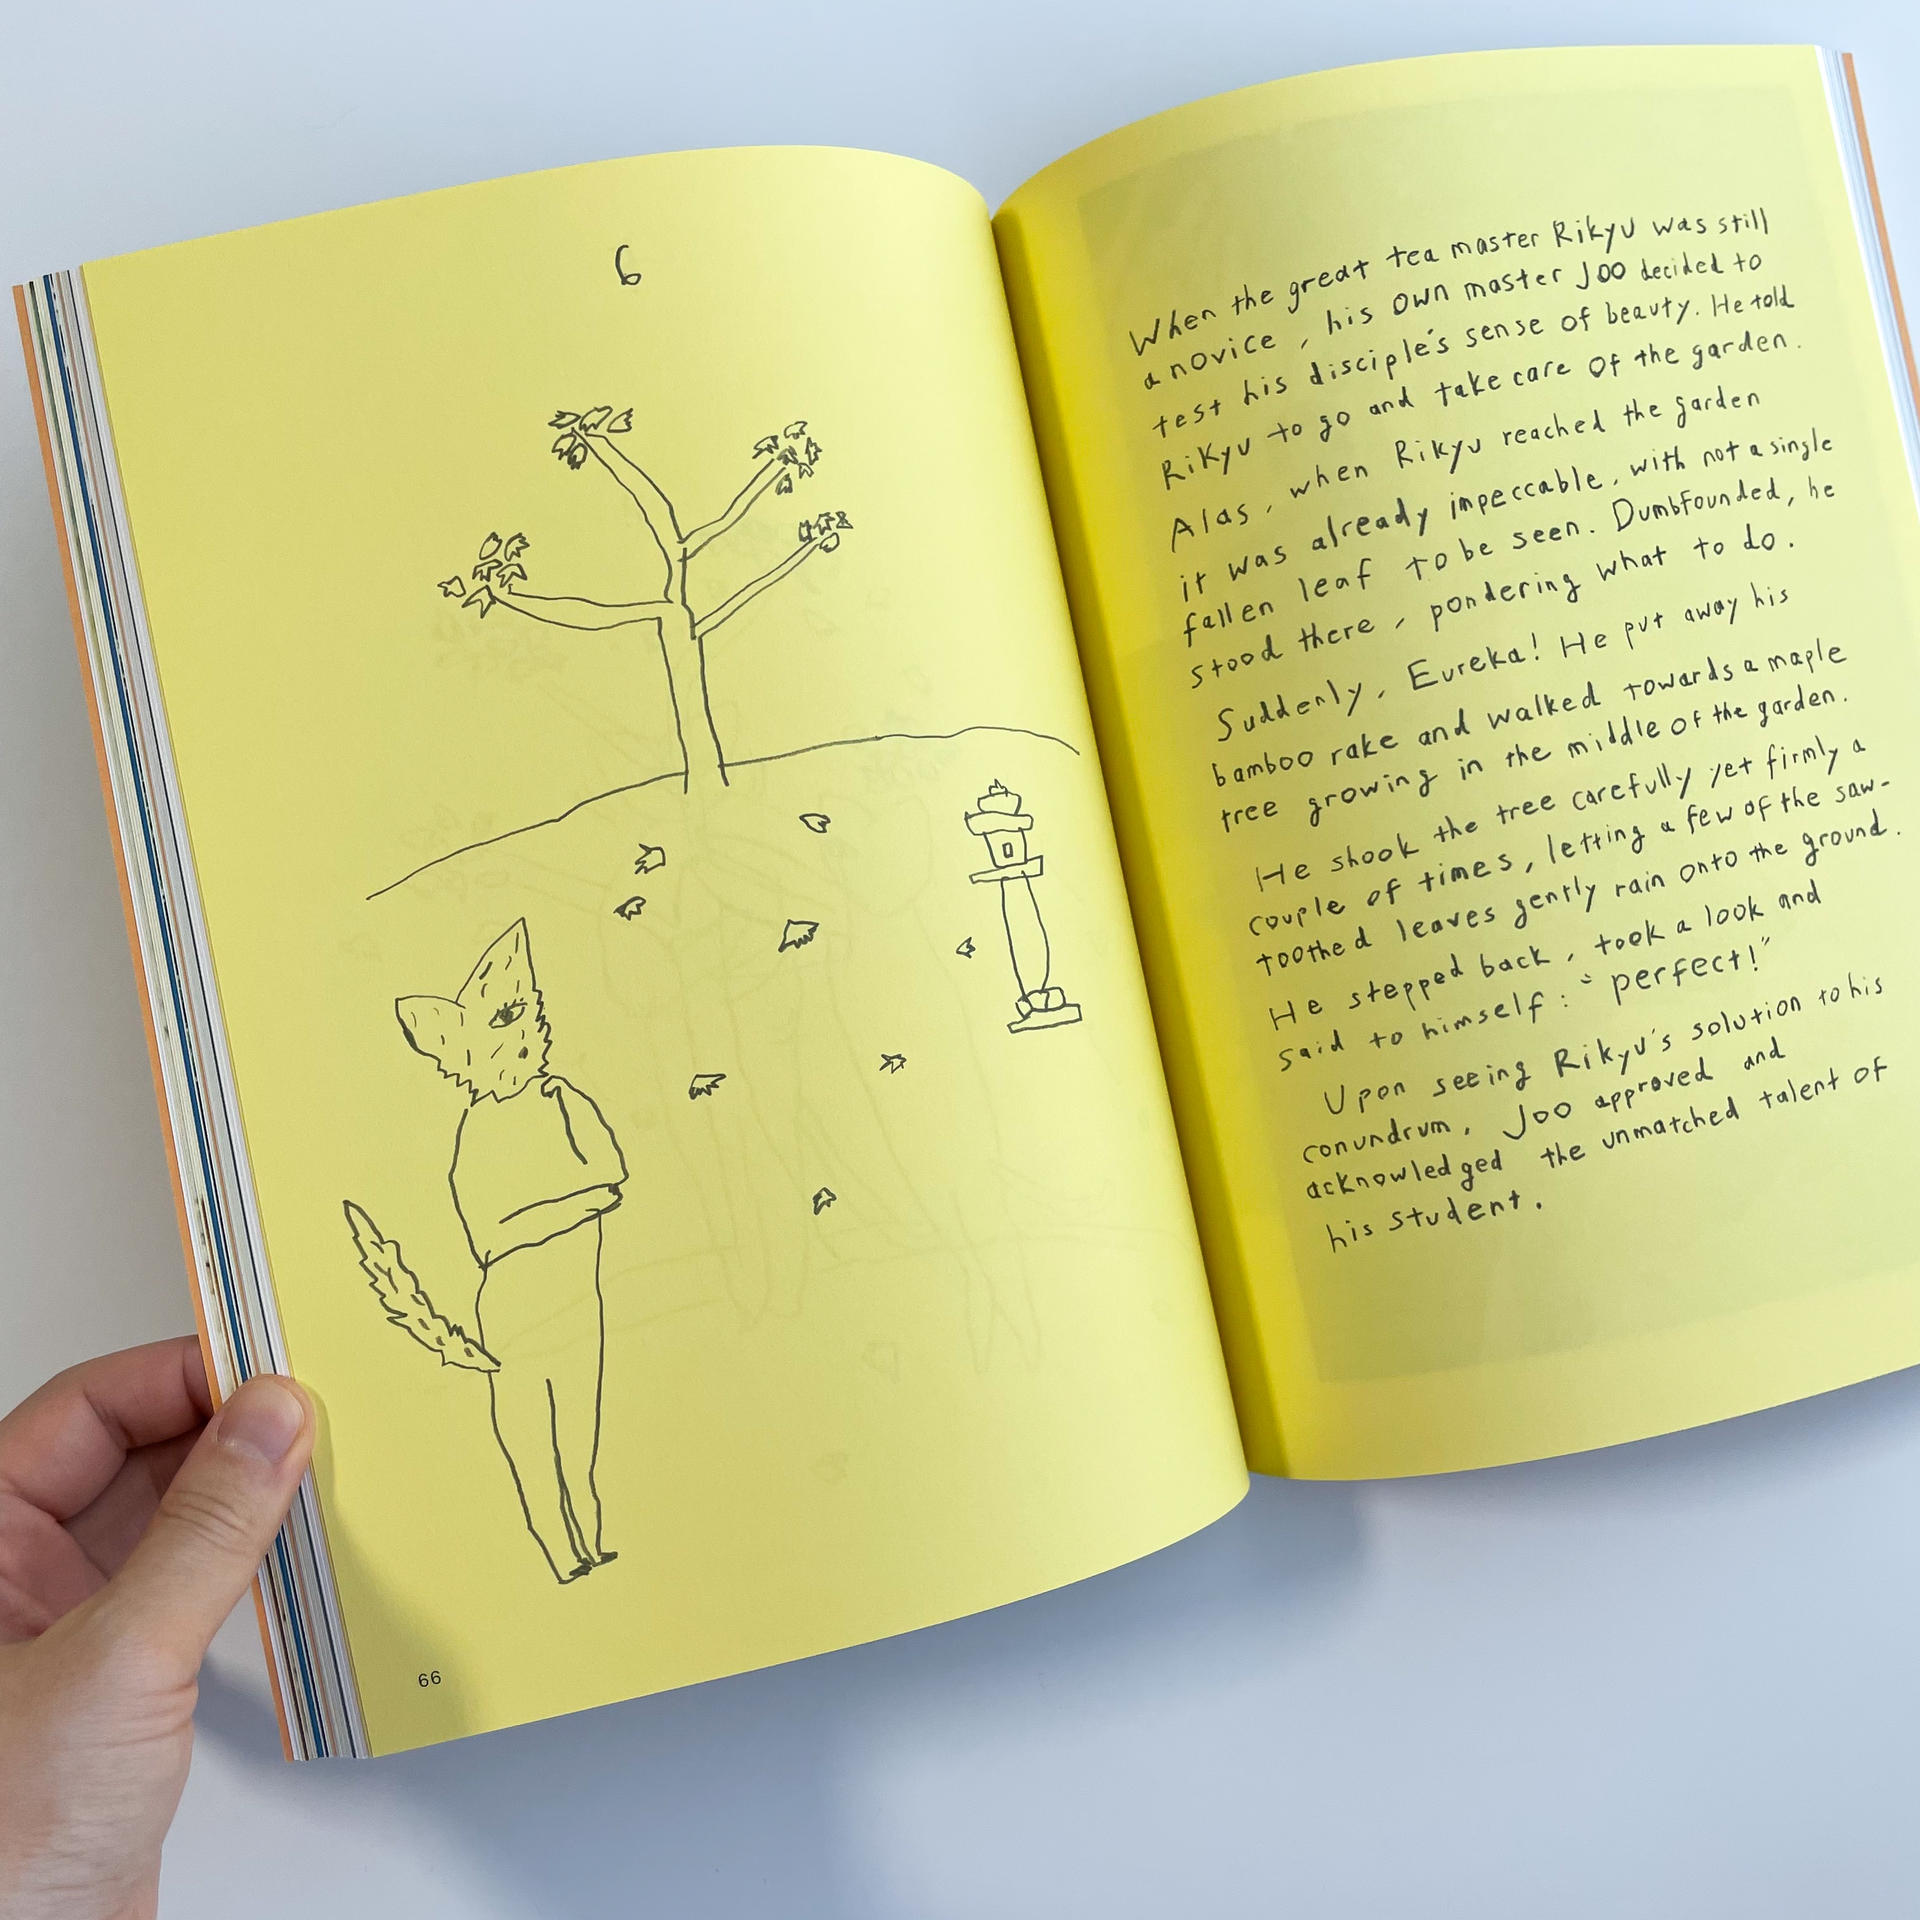 6
66
When the great tea master Rikyu was still
a novice, his own master Joo decided to
test his disciple's sense of beauty. He told
Rikyu to go and take care of the garden.
Alas, when Rikyu reached the garden
it was already impeccable, with not a single
fallen leaf to be seen. Dumbfounded, he
stood there, pondering what to do.
Suddenly, Eureka! He put away his
bamboo rake and walked towards a maple
tree growing in the middle of the garden.
He shook the tree carefully yet firmly a
couple of times, letting a few of the saw-
toothed leaves gently rain onto the ground.
He stepped back, took a look and
said to himself: "perfect!"
Upon seeing Rikyu's solution to his
conundrum, Joo approved and
acknowledged the unmatched talent of
his student.